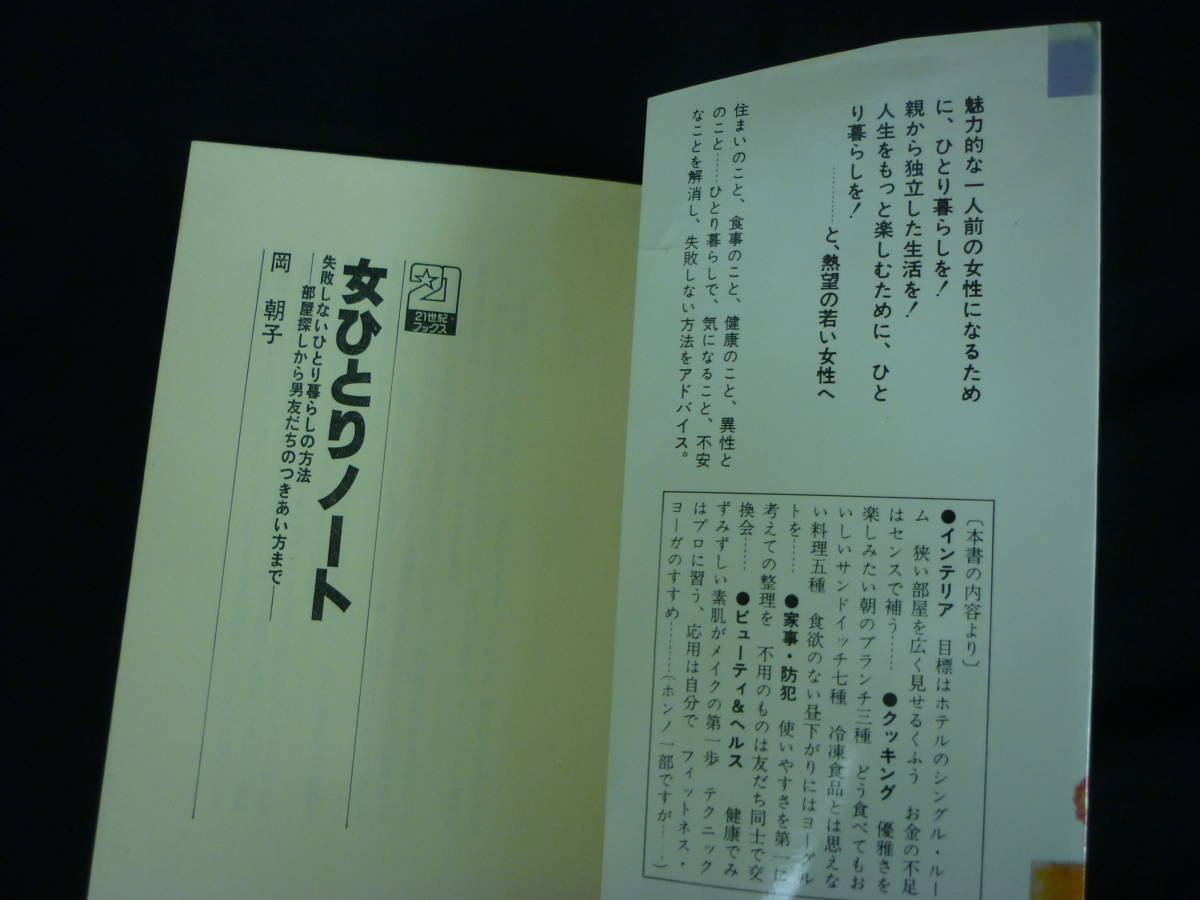 魅力的な一人前の女性になるため
に、ひとり暮らしを！
親から独立した生活を！
人生をもっと楽しむために、ひと
り暮らしを！
…………と、熱望の若い女性へ
住まいのこと、食事のこと、健康のこと、異性と
のこと……ひとり暮らしで、気になること、不安
なことを解消し、失敗しない方法をアドバイス。
〔本書の内容より〕
●インテリア　目標はホテルのシングル・ルー
ム　狭い部屋を広く見せるくふう　お金の不足
はセンスで補う……　●クッキング　優雅さを
楽しみたい朝のブランチ三種　どう食べてもお
いしいサンドイッチ七種　冷凍食品とは思えな
い料理五種　食欲のない昼下がりにはヨーグル
トを……　●家事・防犯　使いやすさを第一に
考えての整理を　不用のものは友だち同士で交
換会……　●ビューティ&ヘルス　健康でみ
ずみずしい素肌がメイクの第一歩　テクニック
はプロに習う、応用は自分で　フィットネス・
ヨーガのすすめ……（ホンノ一部ですが……）
21世紀
ブックス
女ひとりノート
失敗しないひとり暮らしの方法
——部屋探しから男友だちのつきあい方まで——
岡　朝子